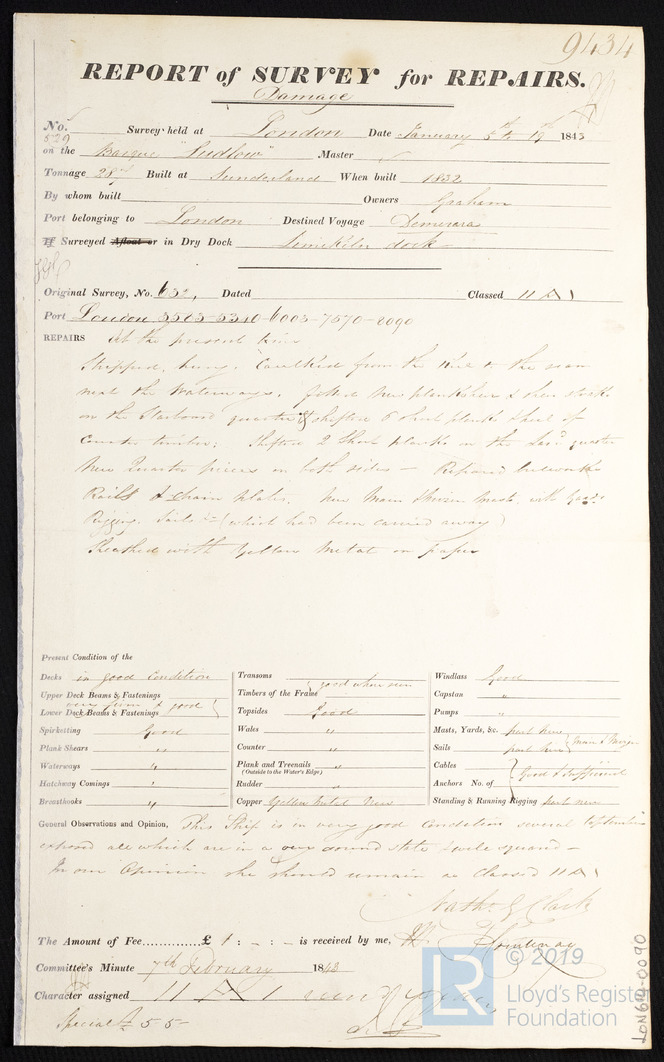 9434
REPORT of SURVEY for REPAIRS.
Damage
No. 529 Survey held at London Date January 5th to 19th 1843
on the Barque "Ludlow" Master
Tonnage 287 Built at Sunderland When built 1832
By whom built Owners Graham
Port belonging to London Destined Voyage Demerara
If Surveyed Afloat or in Dry Dock Limekiln dock
Original Survey, No. 632, Dated Classed 11 A 1
Port London 3585-5310-6003-7570-8090
REPAIRS At the present time
Stripped, hung, Caulked from the Keel to the seam
next the Waterways. fitted New plansheer & sheer strake
on the Starboard quarter & shifted 6 short planks ahead of
Counter timbers; Shifted 2 short planks on the Lar'd quarter
New Quarter pieces on both sides — Repaired bulwarks
Rails & chain plates. New Main & Mizen Mast with Yards
Rigging. Sails &c (which had been carried away)
Sheathed with Yellow Metal on paper
Present Condition of the
Decks in good Condition
Upper Deck Beams & Fastenings
very firm & good
Lower Deck Beams & Fastenings
Spirketting Good
Plank Shears "
Waterways "
Hatchway Comings "
Breasthooks "
Transoms
good where seen
Timbers of the Frame
Topsides Good
Wales "
Counter "
Plank and Treenails "
(Outside to the Water's Edge)
Rudder "
Copper Yellow Metal New
Windlass Good
Capstan "
Pumps "
Masts, Yards, &c. part New
Main & Mizen
Sails part New
Cables
Good & Sufficient
Anchors No. of
Standing & Running Rigging part new
General Observations and Opinion, This Ship is in very good Condition several
exposed all which are in a very sound state & well squared —
In our Opinion she should remain as Classed 11 A 1
Nath. G Clark
The Amount of Fee £ 1 : - : - is received by me,
Committee's Minute 7th February 1843
Character assigned 11 A 1
Special Fee 5 5 -
LON610-0090
LR
© 2019
Lloyd's Register
Foundation